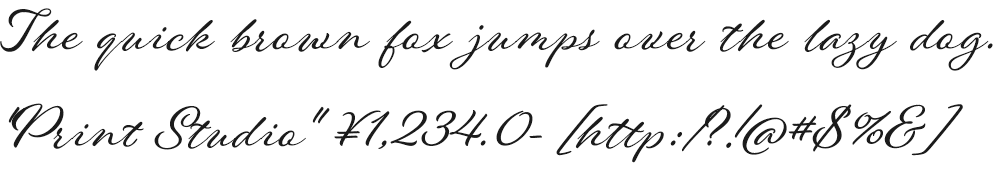 The quick brown fox jumps over the lazy dog.
"Print Studio" ¥1,234.0- [http:/?!@#$%&]